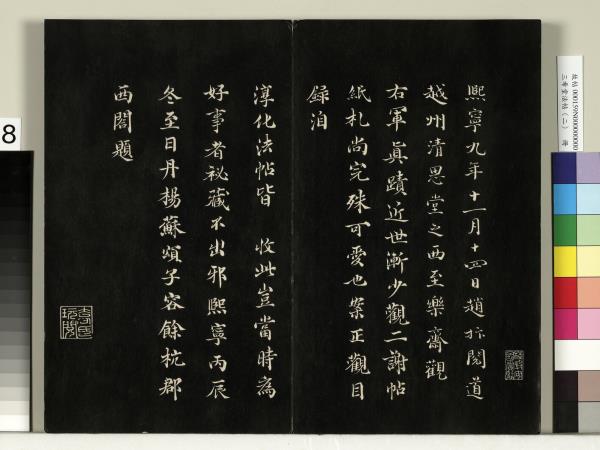 熈寧九年十一月十四日趙抃閱道
越州清思堂之西至樂齋觀
右軍真蹟近世漸少觀二謝帖
紙札尚完殊可愛也案正觀目
録洎
淳化法帖皆 收此豈當時為
好事者祕藏不出邪熈寧丙辰
冬至日丹揚蘇頌子容餘杭郡
西閣題
故帖 000159N000000000
三希堂法帖(二) 冊
8